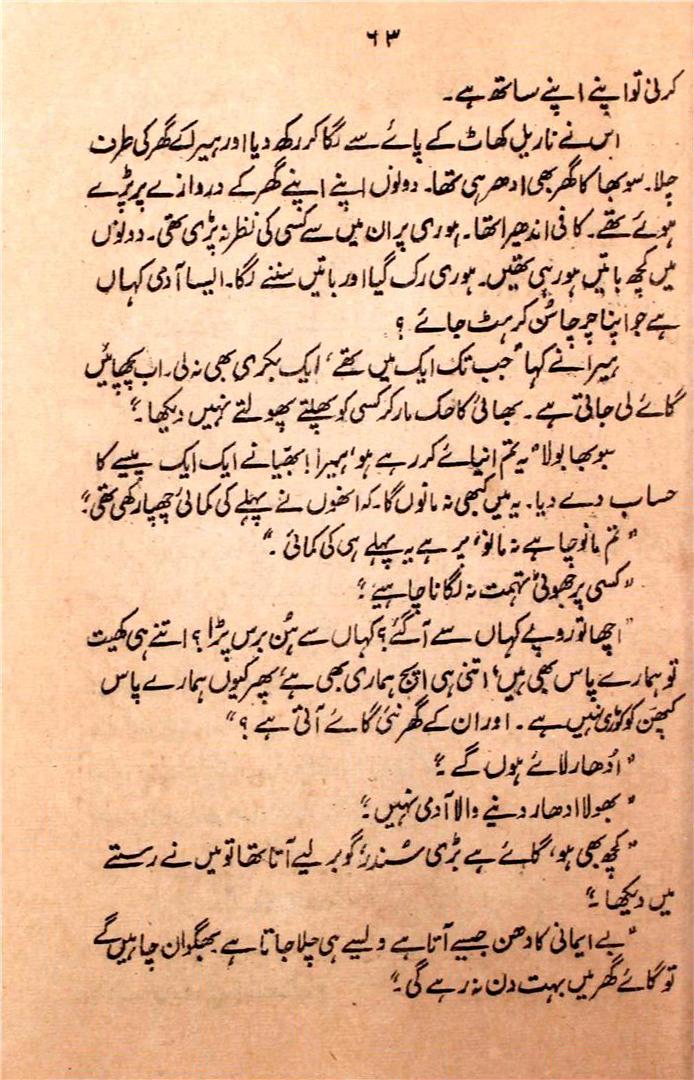 ۶۳
کرنی تو اپنے اپنے ساتھ ہے۔
اس نے ناریل کھاٹ کے پائے سے لگا کر رکھ دیا اور ہیرا کے گھر کی طرف
چلا۔ سوبھا کا گھر بھی ادھر ہی تھا۔ دونوں اپنے اپنے گھر کے دروازے پر پڑے
ہوئے تھے۔ کافی اندھیرا تھا۔ ہوری پر ان میں سے کسی کی نظر نہ پڑی تھی۔ دونوں
میں کچھ باتیں ہو رہی تھیں۔ ہوری رک گیا اور باتیں سننے لگا۔ ایسا آدمی کہاں
ہے جو اپنا چرچا سُن کر ہٹ جائے ؟
ہیرا نے کہا "جب تک ایک میں تھے، ایک بکری بھی نہ لی۔ اب پچھائیں
گائے لی جاتی ہے۔ بھائی کا حک مار کر کسی کو پھلتے پھولتے نہیں دیکھا۔"
سوبھا بولا "یہ تم انیائے کر رہے ہو، ہیرا! بھیّا نے ایک ایک پیسے کا
حساب دے دیا۔ یہ میں کبھی نہ مانوں گا۔ کہ انھوں نے پہلے کی کمائی چھپا رکھی تھی۔"
"تم مانو چاہے نہ مانو، پر ہے یہ پہلے ہی کی کمائی۔"
"کسی پر جھوٹی تہمت نہ لگانا چاہیے۔"
"اچھا تو روپے کہاں سے آگئے؟ کہاں سے ہُن برس پڑا؟ اتنے ہی کھیت
تو ہمارے پاس بھی ہیں، اتنی ہی اپج ہماری بھی ہے، پھر کیوں ہمارے پاس
کپھن کو کوڑی نہیں ہے۔ اور ان کے گھر نئی گائے آتی ہے؟"
"اُدھار لائے ہوں گے۔"
"بھولا ادھار دینے والا آدمی نہیں۔"
"کچھ بھی ہو، گائے ہے بڑی سُندر، گوبر لیے آتا تھا تو میں نے رستے
میں دیکھا۔"
"بے ایمانی کا دھن جیسے آتا ہے ویسے ہی چلا جاتا ہے بھگوان چاہیں گے
تو گائے گھر میں بہت دن نہ رہے گی۔"